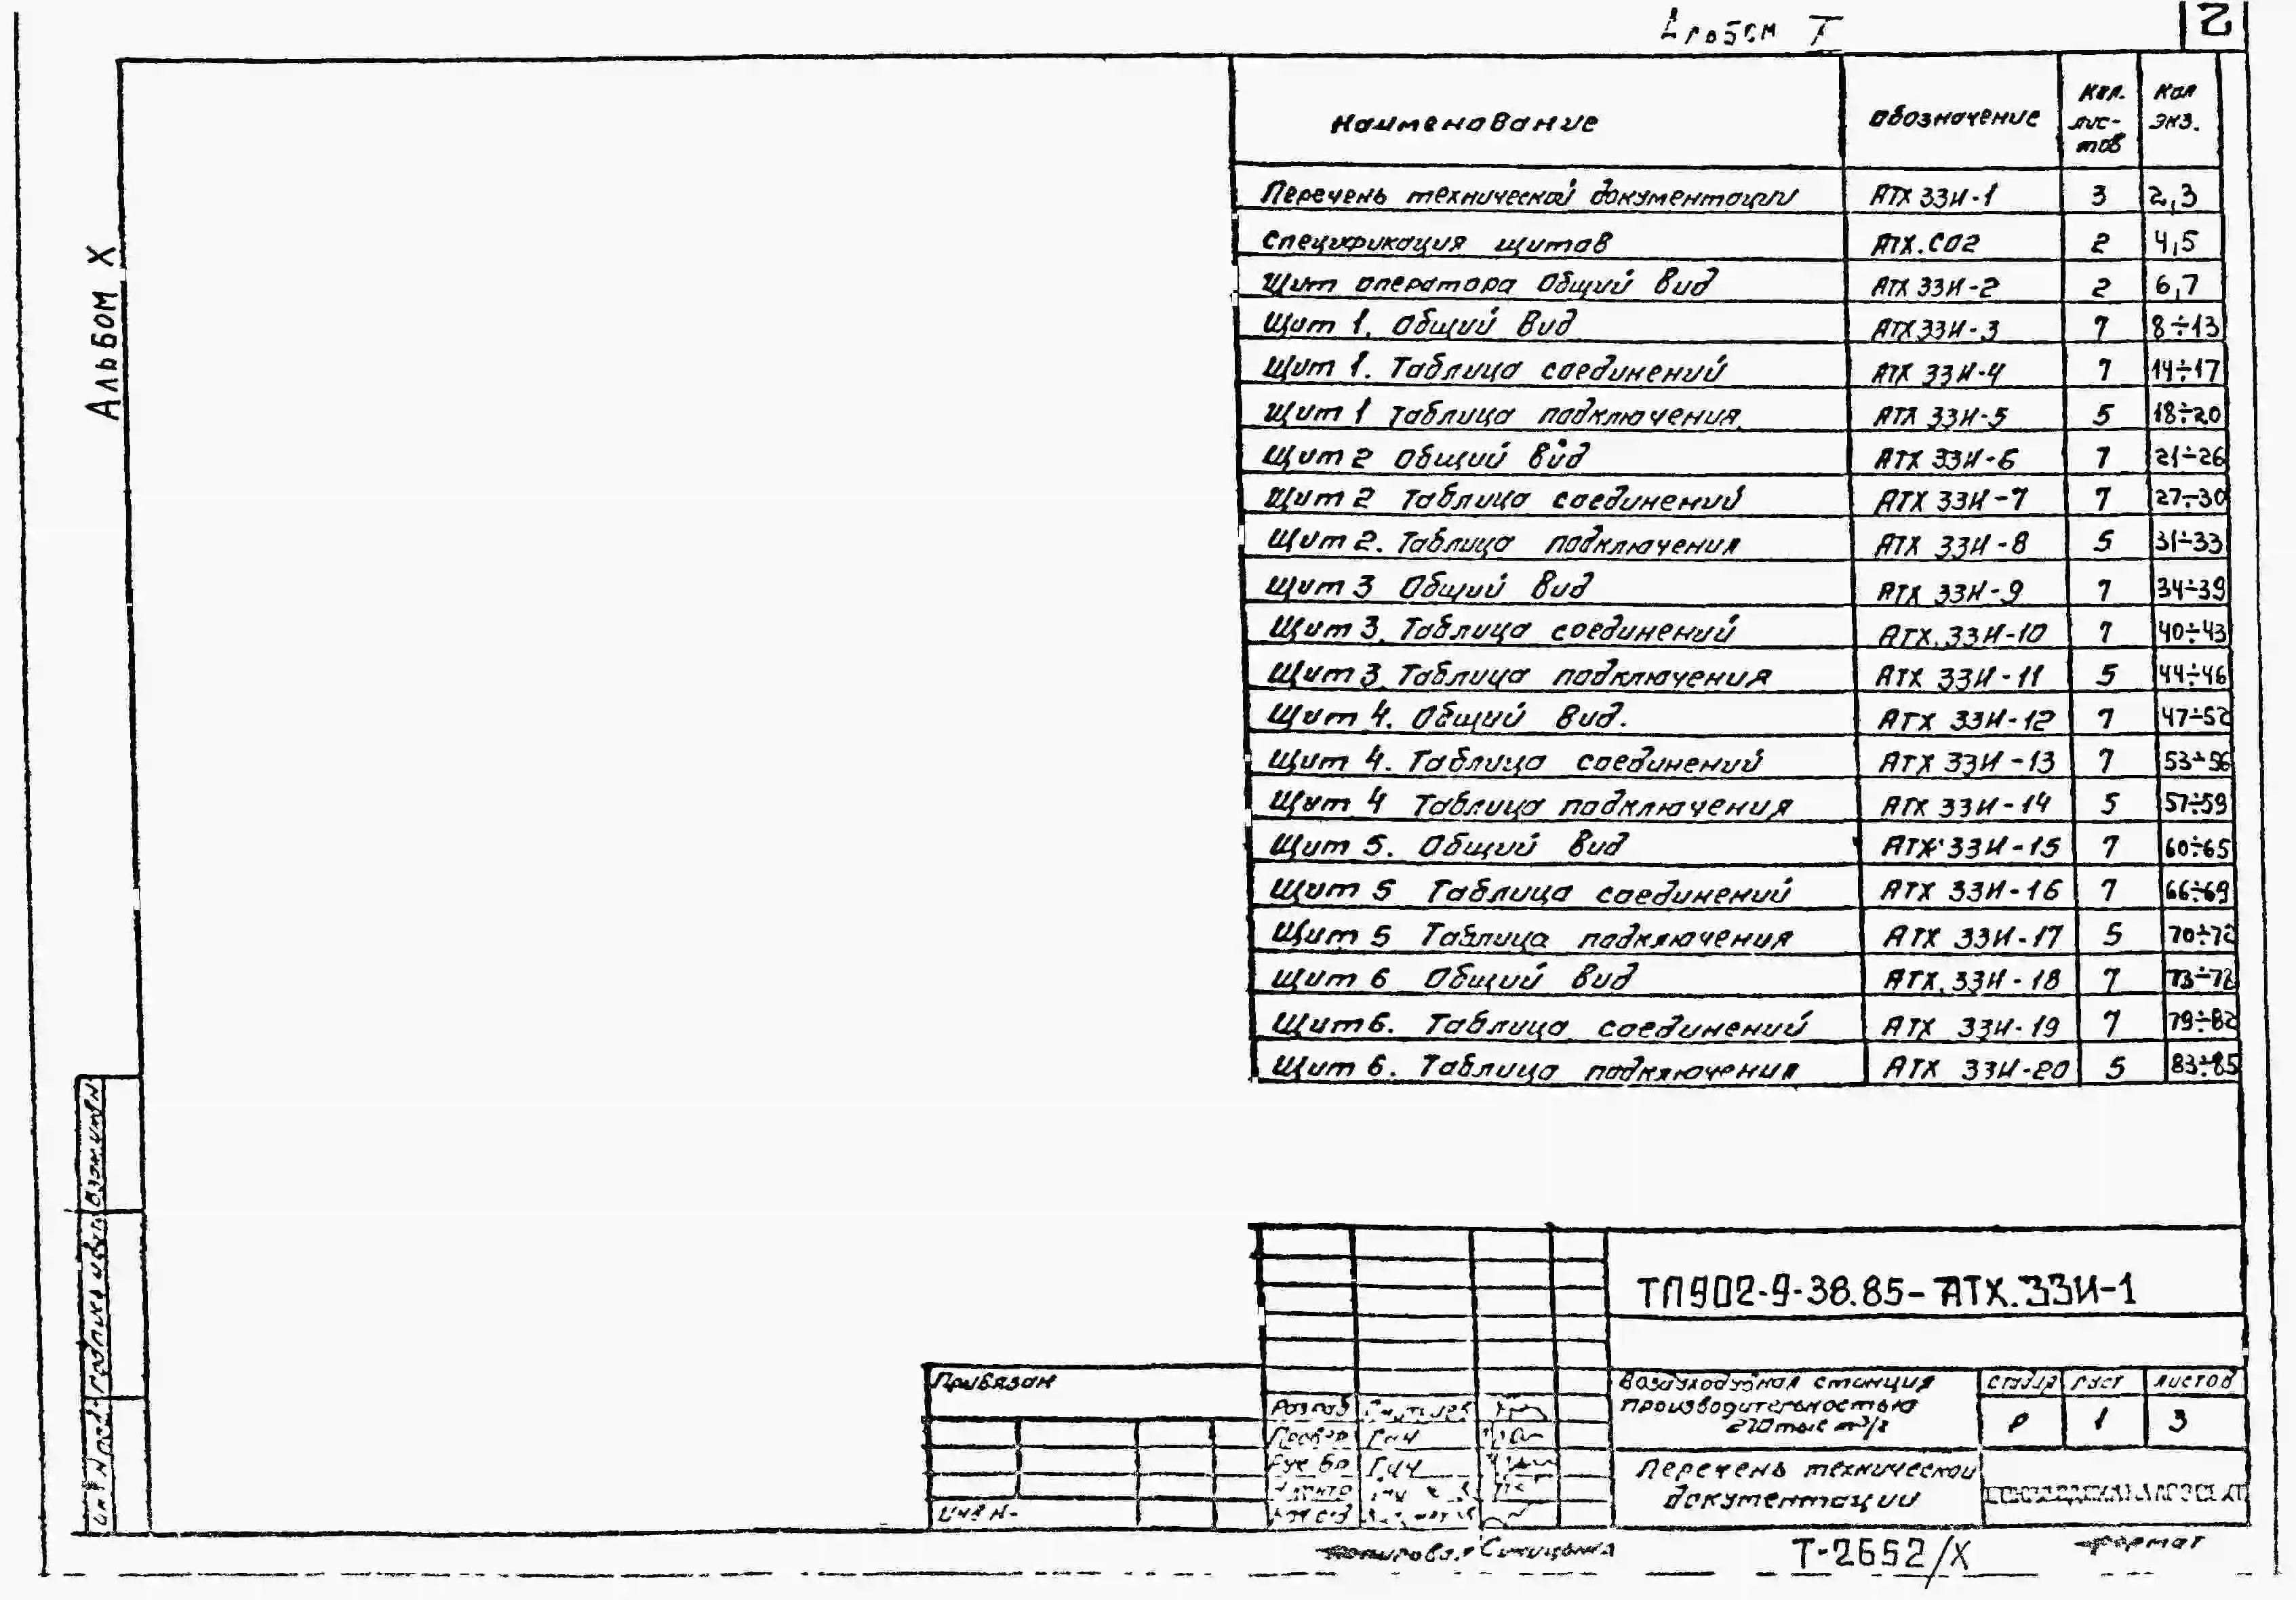 2
Альбом X
Наименование Обозначение Кол. лис-тов Кол экз.
Перечень технической документации АТХ 33И-1 3 2,3
Спецификация щитов АТХ.СО2 2 4,5
Щит оператора Общий вид АТХ 33И-2 2 6,7
Щит 1. Общий вид АТХ 33И-3 7 8÷13
Щит 1. Таблица соединений АТХ 33И-4 7 14÷17
Щит 1 Таблица подключения АТХ 33И-5 5 18÷20
Щит 2 Общий вид АТХ 33И-6 7 21÷26
Щит 2 Таблица соединений АТХ 33И-7 7 27÷30
Щит 2. Таблица подключения АТХ 33И-8 5 31÷33
Щит 3 Общий вид АТХ 33И-9 7 34÷39
Щит 3. Таблица соединений АТХ.33И-10 7 40÷43
Щит 3. Таблица подключения АТХ 33И-11 5 44÷46
Щит 4. Общий вид. АТХ 33И-12 7 47÷52
Щит 4. Таблица соединений АТХ 33И-13 7 53÷56
Щит 4 Таблица подключения АТХ 33И-14 5 57÷59
Щит 5. Общий вид АТХ 33И-15 7 60÷65
Щит 5 Таблица соединений АТХ 33И-16 7 66÷69
Щит 5 Таблица подключения АТХ 33И-17 5 70÷72
Щит 6 Общий вид АТХ.33И-18 7 73÷78
Щит 6. Таблица соединений АТХ 33И-19 7 79÷82
Щит 6. Таблица подключения АТХ 33И-20 5 83÷85
ТП902-9-38.85-АТХ.33И-1
Привязан
Инв N-
Разраб
Провер Гач
Рук бр Гач
Воздуходувная станция
производительностью
Стадия Лист Листов
Р 1 3
Перечень технической
документации
Копировал
Т-2652/X
Формат